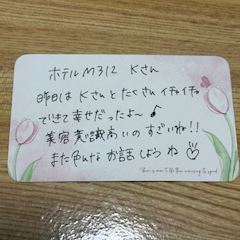 ホテルM312 Kさん
昨日は Kさんと たくさん イチャイチャ
できて幸せだったよ〜♪
美容意識高いの すごいね!!
また色んな お話 しよう ね♡